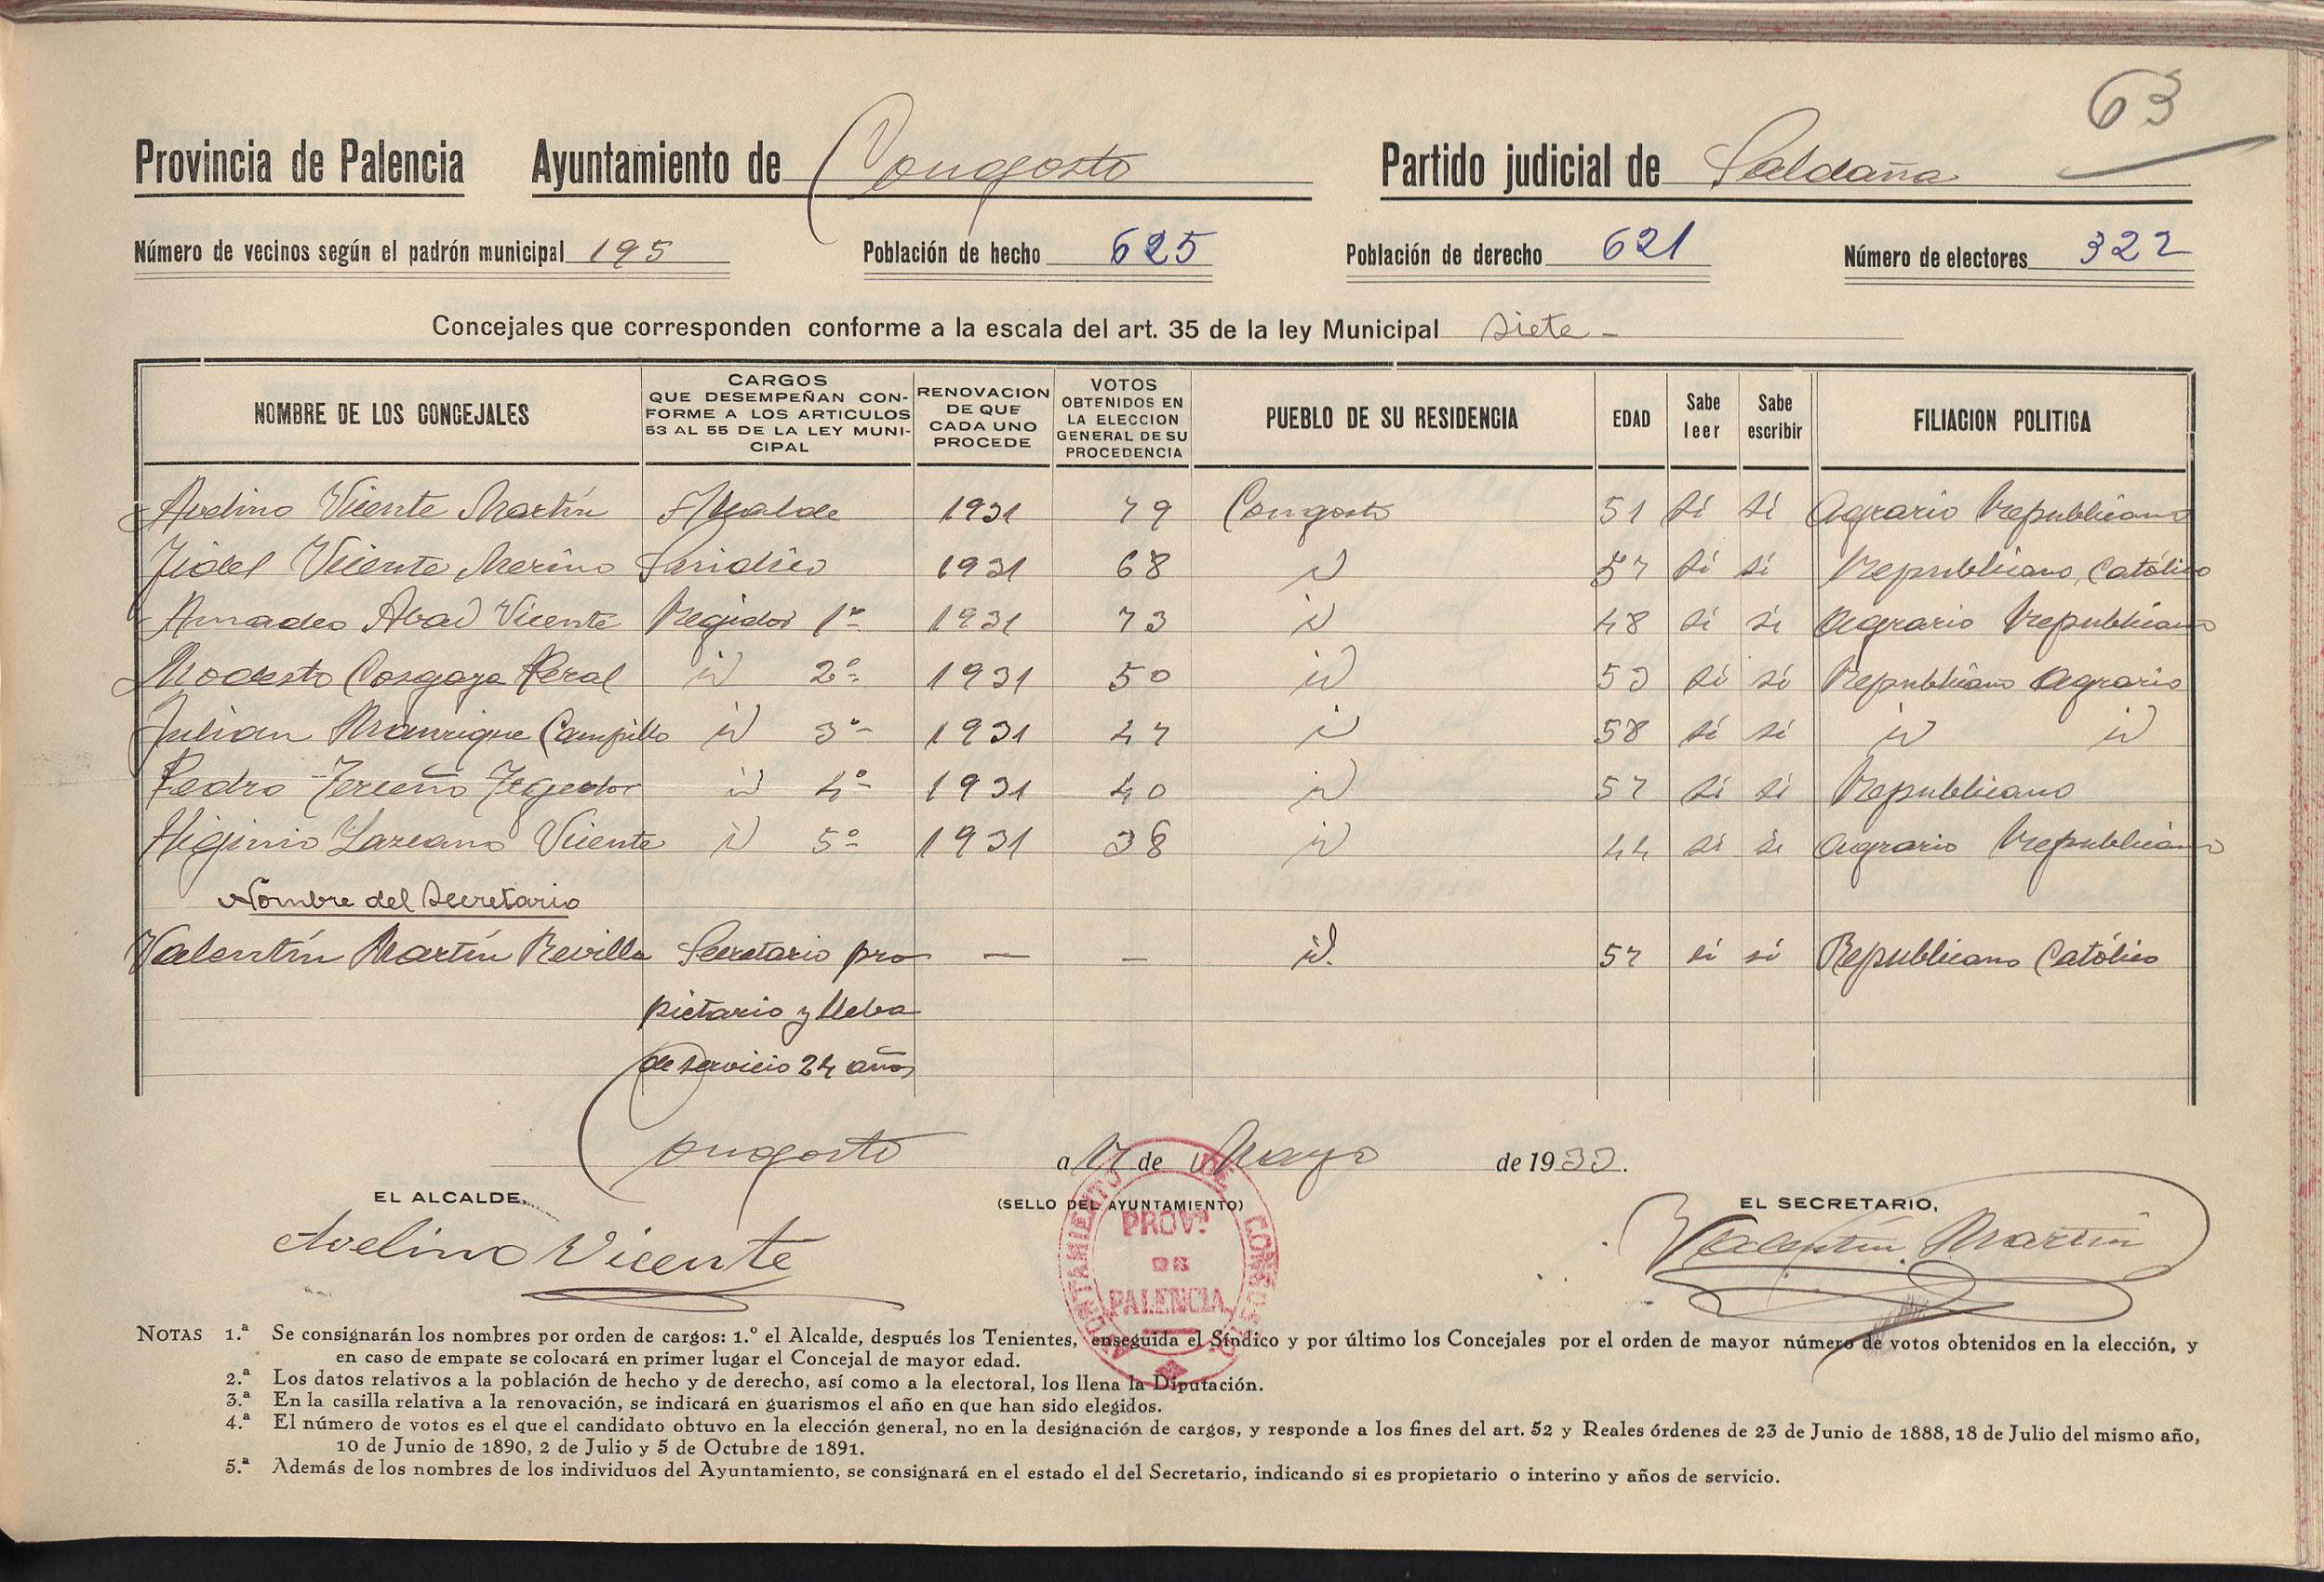 63
Provincia de Palencia Ayuntamiento de Congosto Partido judicial de Saldaña
Número de vecinos según el padrón municipal 195 Población de hecho 625 Población de derecho 621 Número de electores 322
Concejales que corresponden conforme a la escala del art. 35 de la ley Municipal siete -
NOMBRE DE LOS CONCEJALES
CARGOS
QUE DESEMPEÑAN CON-
FORME A LOS ARTICULOS
53 AL 55 DE LA LEY MUNI-
CIPAL
RENOVACION
DE QUE
CADA UNO
PROCEDE
VOTOS
OBTENIDOS EN
LA ELECCION
GENERAL DE SU
PROCEDENCIA
PUEBLO DE SU RESIDENCIA
EDAD
Sabe
leer
Sabe
escribir
FILIACION POLITICA
Avelino Vicente Martín Alcalde 1931 79 Congosto 51 sí sí Agrario Republicano
Fidel Vicente Merino Síndico 1931 68 id 57 sí sí Republicano Católico
Amadeo Abad Vicente Regidor 1º 1931 73 id 48 sí si Agrario Republicano
Modesto Cosgaya Peral id 2º 1931 50 id 53 sí sí Republicano Agrario
Julian Manrique Campillo id 3º 1931 47 id 58 sí sí id id
Pedro Terceño Tejedor id 4º 1931 40 id 57 sí sí Republicano
Higinio Lazcano Vicente id 5º 1931 38 id 44 si si Agrario Republicano
Nombre del Secretario
Valentín Martín Revilla Secretario pro — — id. 57 sí sí Republicano Católico
pietario y lleba
de servicio 24 años
Congosto a 17 de Mayo de 1933.
EL ALCALDE, (SELLO DEL AYUNTAMIENTO) EL SECRETARIO,
AYUNTAMIENTO DE CONGOSTO
PROVª
DE
PALENCIA
Avelino Vicente Valentín Martín
NOTAS 1.ª Se consignarán los nombres por orden de cargos: 1.º el Alcalde, después los Tenientes, enseguida el Síndico y por último los Concejales por el orden de mayor número de votos obtenidos en la elección, y
en caso de empate se colocará en primer lugar el Concejal de mayor edad.
2.ª Los datos relativos a la población de hecho y de derecho, así como a la electoral, los llena la Diputación.
3.ª En la casilla relativa a la renovación, se indicará en guarismos el año en que han sido elegidos.
4.ª El número de votos es el que el candidato obtuvo en la elección general, no en la designación de cargos, y responde a los fines del art. 52 y Reales órdenes de 23 de Junio de 1888, 18 de Julio del mismo año,
10 de Junio de 1890, 2 de Julio y 5 de Octubre de 1891.
5.ª Además de los nombres de los individuos del Ayuntamiento, se consignará en el estado el del Secretario, indicando si es propietario o interino y años de servicio.